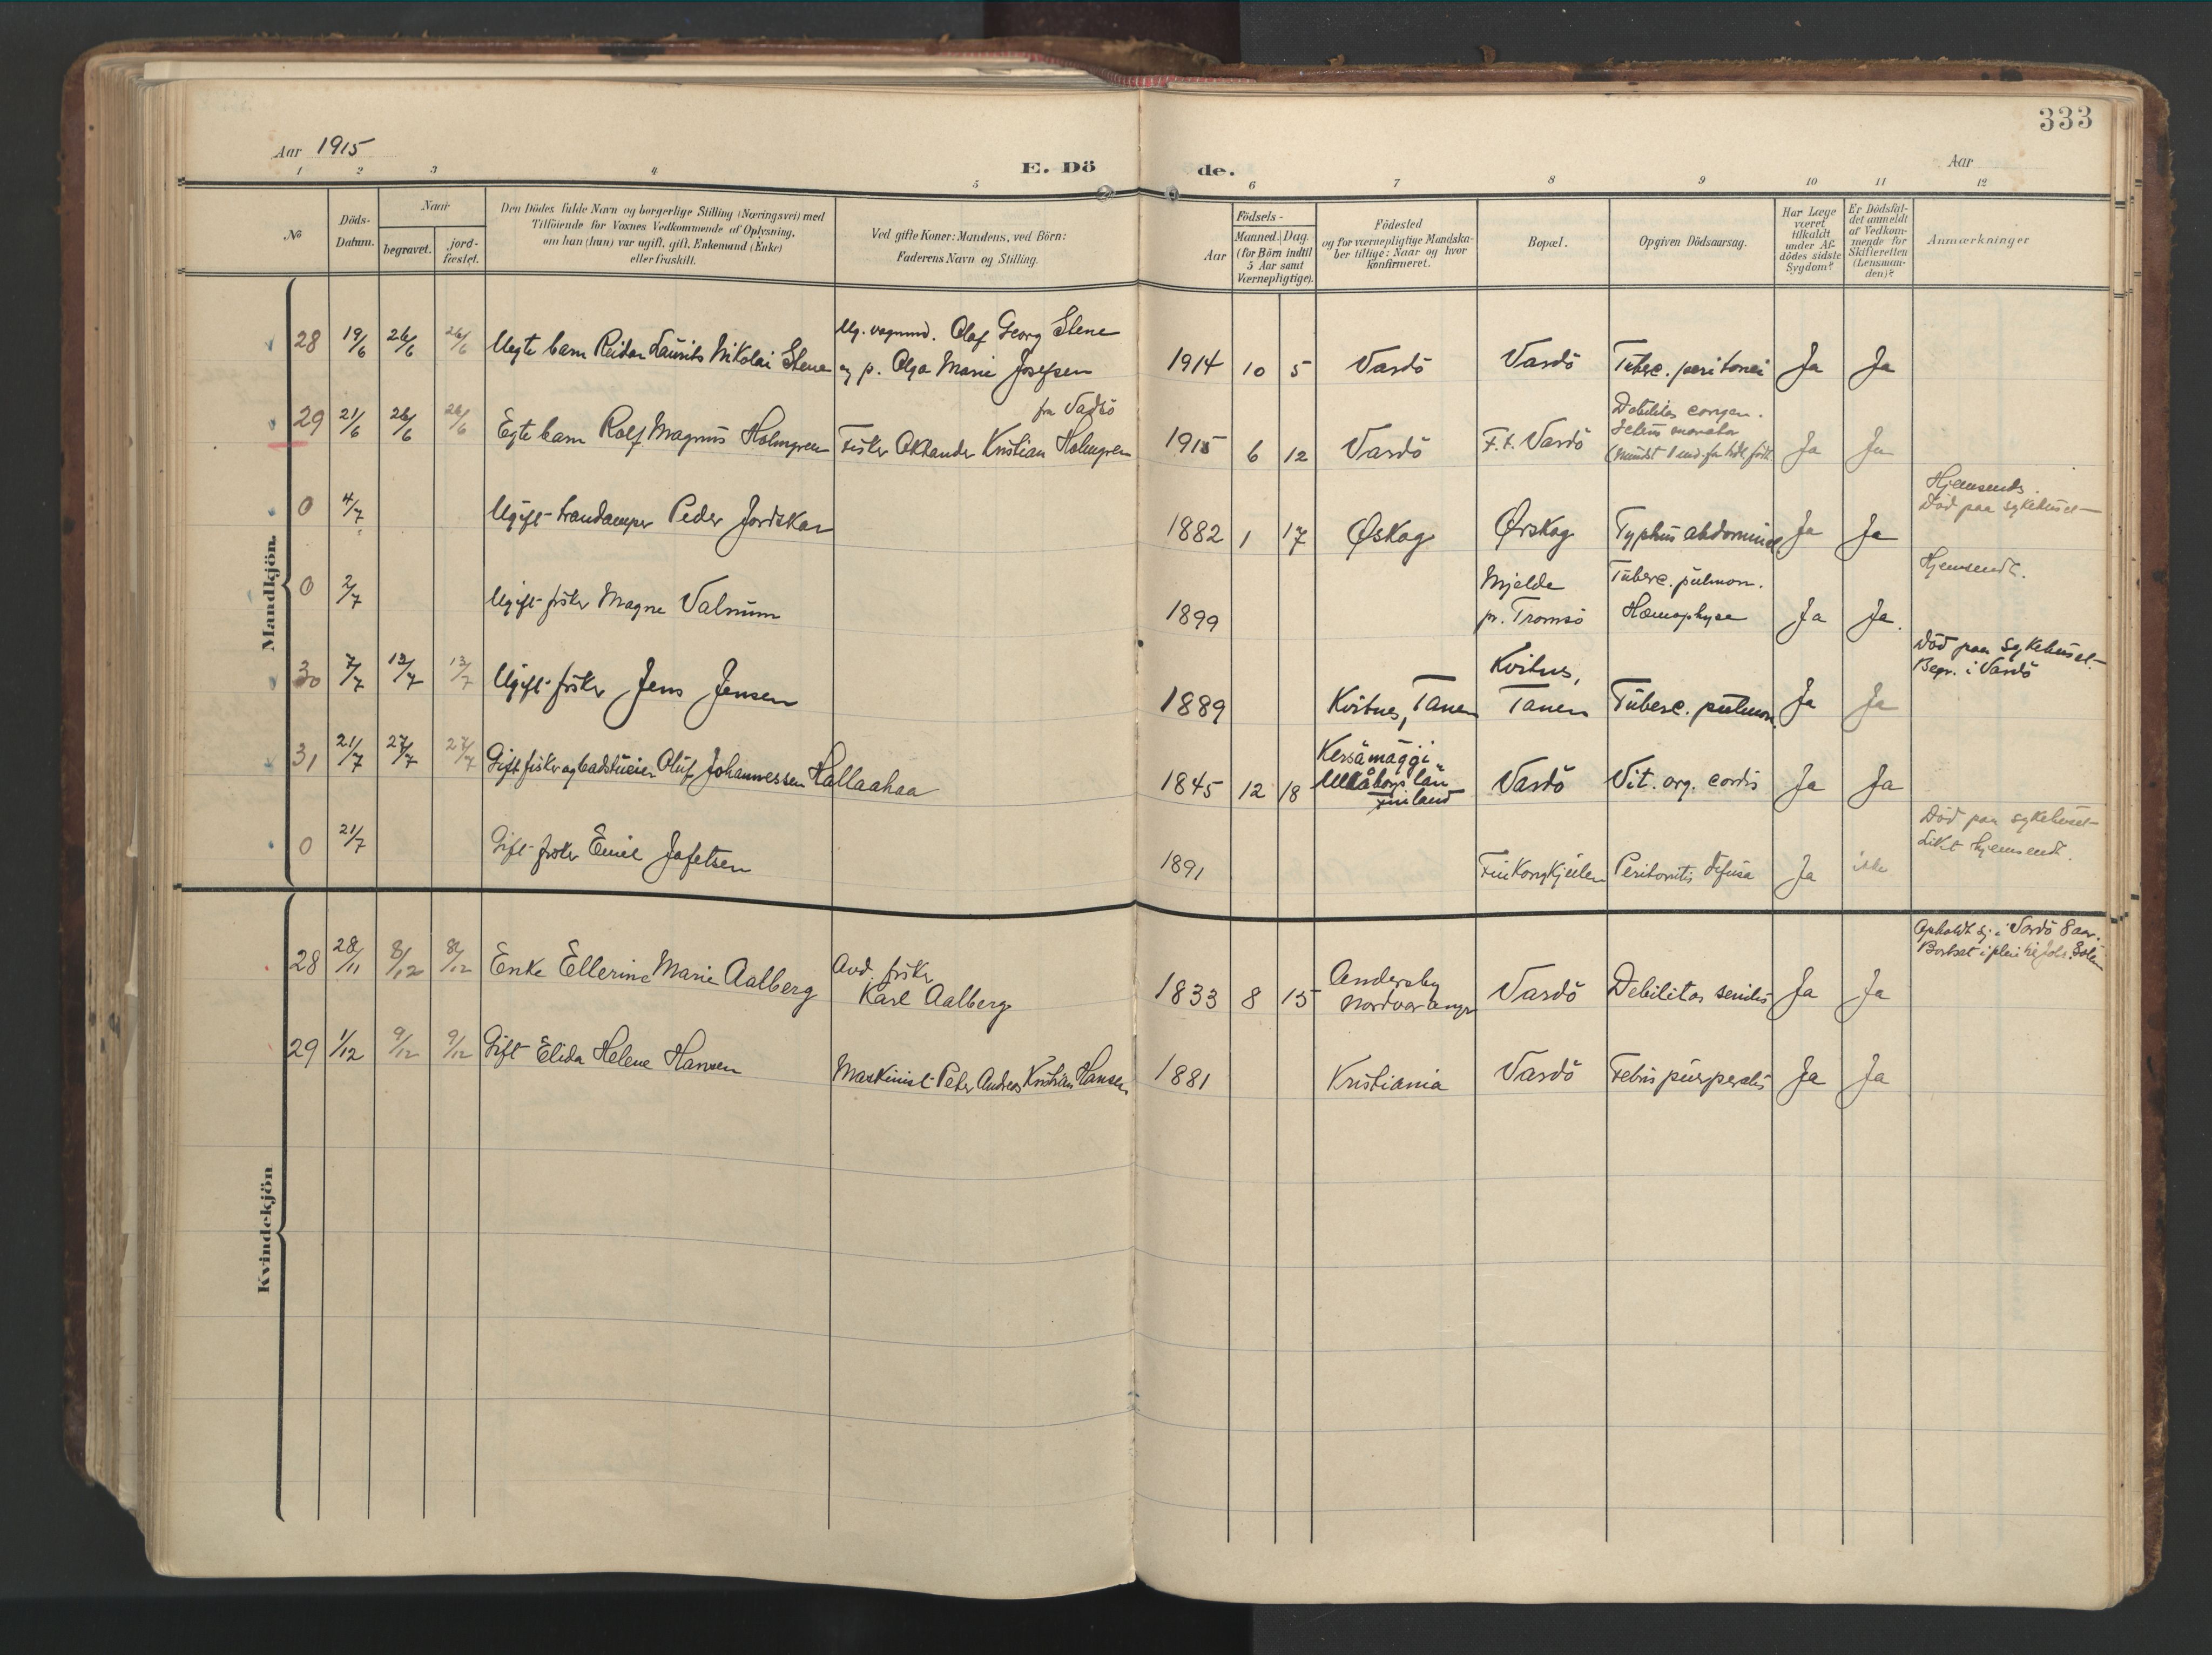 333
Aar 1915
E. Dö
de.
Aar
1 2 3 4 5 6 7 8 9 10 11 12
№
Döds-
Datum.
Naar
begravet.
jord-
fæstet.
Den Dödes fulde Navn og borgerlige Stilling (Næringsvei) med
Tilföiende for Voxnes Vedkommende af Oplysning,
om han (hun) var ugift, gift, Enkemand (Enke)
eller fraskilt.
Ved gifte Koner: Mandens, ved Börn:
Faderens Navn og Stilling.
Aar
Födsels-
Manned. Dag.
(for Börn indtil
5 Aar samt
Værnepligtige).
Födested
og for værnepligtige Mandska-
ber tillige: Naar og hvor
konfirmeret.
Bopæl.
Opgiven Dödsaarsag.
Har Læge
været
tilkaldt
under Af-
dödes sidste
Sygdom?
Er Dödsfal-
det anmeldt
af Vedkom-
mende for
Skifteretten
(Lensman-
den)?
Anmærkninger
Mandkjön.
28 19/6 26/6 26/6 Uegte barn Reidar Laurits Nikolai Stene
Ug. vognmd. Olaf Georg Stene
og p. Olga Marie Josefsen
1914 10 5 Vardö Vardö Tuberc. peritonei Ja Ja
29 21/6 26/6 26/6 Egte barn Rolf Magnus Holmgren
fra Vadsö
Fisker Kristian Holmgren
1915 6 12 Vardö F.t. Vardö
Debilitas congen.
Ja Ja
0 4/7 Ugift trandamper Peder Jordskar
1882 1 17 Øskog Ørskog Typhus abdominal Ja Ja
Hjemsendt.
Död paa sykehuset
0 2/7 Ugift fisker Magne Valnum
1899
Mjelde
pr. Tromsö
Tuberc. pulmon.
Hæmophyse
Ja Ja.
Hjemsendt.
30 7/7 13/7 13/7 Ugift fisker Jens Jensen
1889 Kvitnes, Tanen
Kvitnes,
Tanen
Tuberc. pulmon. Ja Ja
Död paa sykehuset
Begr. i Vardö
31 21/7 27/7 27/7 Gift fisker og badstueier Oluf Johannessen Hallaahaa
1845 12 18
Kersämäggi
Uleåborgs län
Finland
Vardö Vit. org. cordis Ja Ja
0 21/7 Gift fisker Emil Jafetsen
1891 Finkongkjeilen Peritonitis difusa Ja ikke
Död paa sykehuset
Liket hjemsendt.
Kvindekjön
28 28/11 8/12 8/12 Enke Ellerine Marie Aalberg
Avd. fisker
Karl Aalberg
1833 8 15
Andersby
Nordvaranger
Vardö Debilitas senilis Ja Ja
Opholdt sig i Vardö 8 aar.
29 1/12 9/12 9/12 Gift Elida Helene Hansen
Maskinist Peter Andreas Kristian Hansen
1881 Kristiania Vardö Febris puerperalis Ja Ja